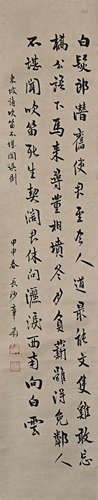 白髮郎潛舊使君至今人道最能文隻雞敢忘
橋公語下馬來尋董相墳冬月負薪雖得免鄰人
不堪聞吹笛死生契闊君休問灑淚西南向白雲
東坡詩吹笛不堪聞誤倒
甲申春長沙章